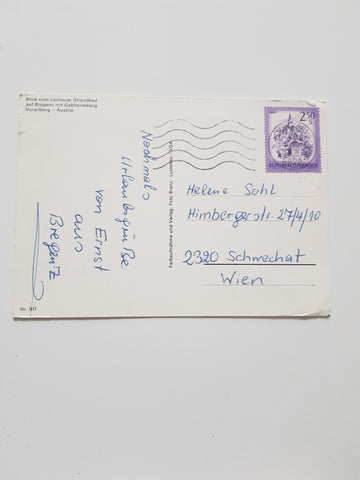 Blick vom Lochauer Strandbad
auf Bregenz mit Gebhardsberg
Vorarlberg - Austria
Nochmals
Urlaubsgrüße
von Ernst
aus
Bregenz
Nr. 911
Farbaufnahme und Verlag: Foto Branz, Lustenau
2.50
S
REPUBLIK ÖSTERREICH
Helene Sohl
Himbergerstr. 27/4/10
2320 Schwechat
Wien